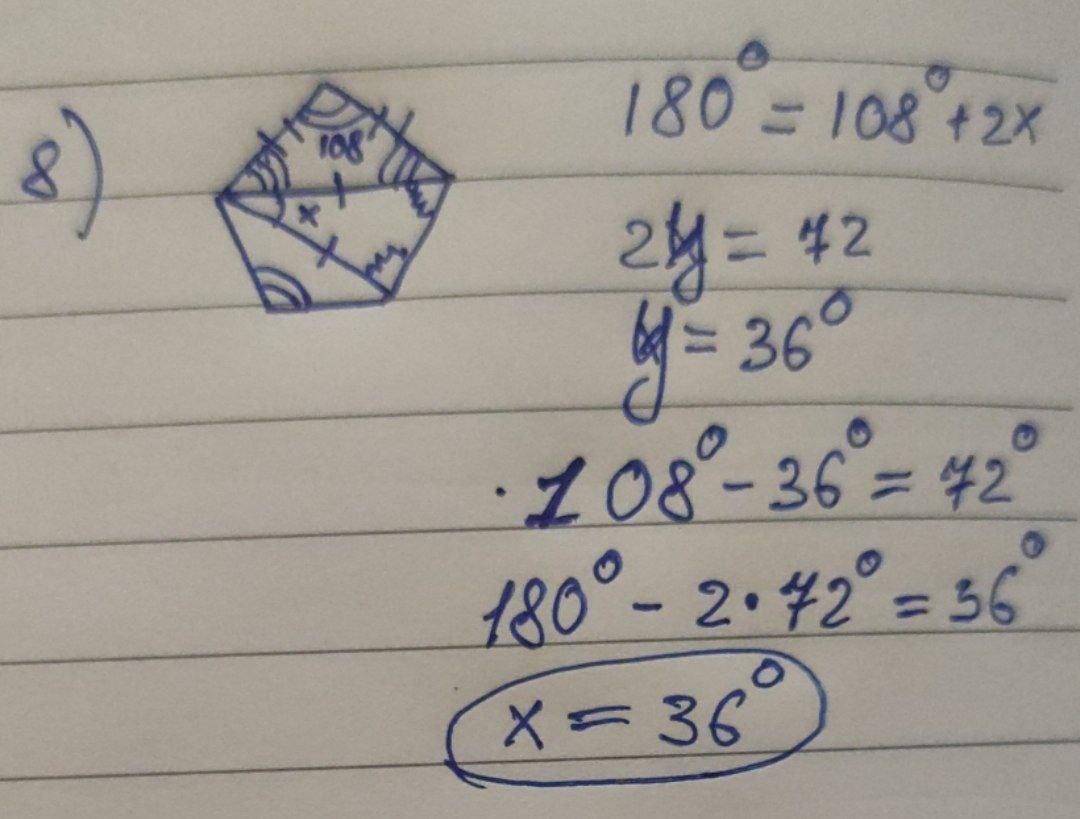 8)
108
x
180° = 108° + 2x
2y = 72
y = 36°
· 108° - 36° = 72°
180° - 2 · 72° = 36°
x = 36°